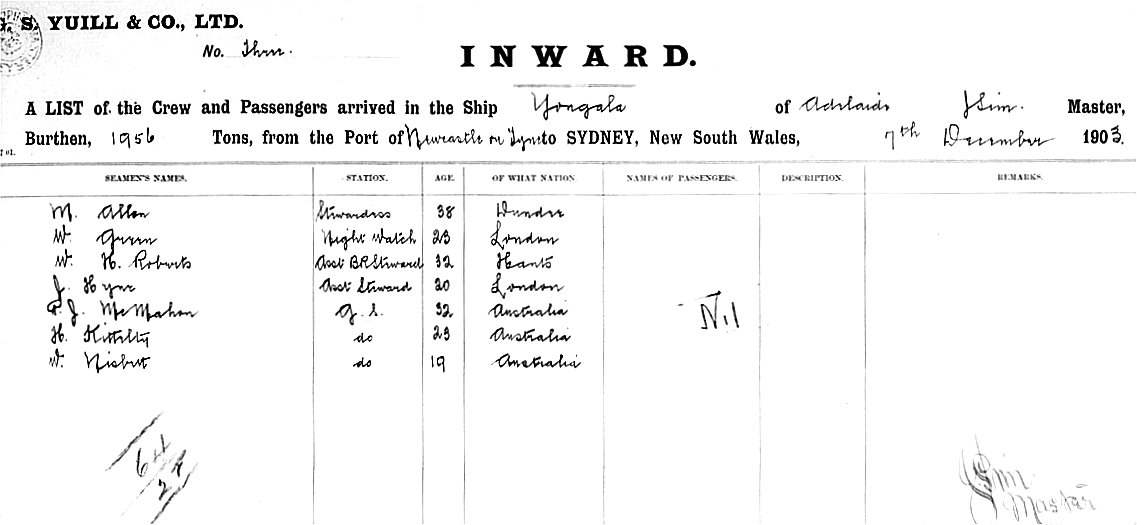 S. YUILL & CO., LTD.
No. Three.
INWARD.
A LIST of the Crew and Passengers arrived in the Ship Yongala of Adelaide J Sim. Master,
Burthen, 1956 Tons, from the Port of Newcastle on Tyne to SYDNEY, New South Wales, 7th December 1903.
SEAMEN'S NAMES. STATION. AGE. OF WHAT NATION. NAMES OF PASSENGERS. DESCRIPTION. REMARKS.
M. Allan Stewardess 38 Dundee
W. Green Night Watch 23 London
W. H. Roberts Asst BR Steward 32 Hants
J. Hyne Asst Steward 20 London
J. McMahon G. S. 32 Australia
Nil
H. do 23 Australia
W. Nisbett do 19 Australia
64
27
J Sim
Master